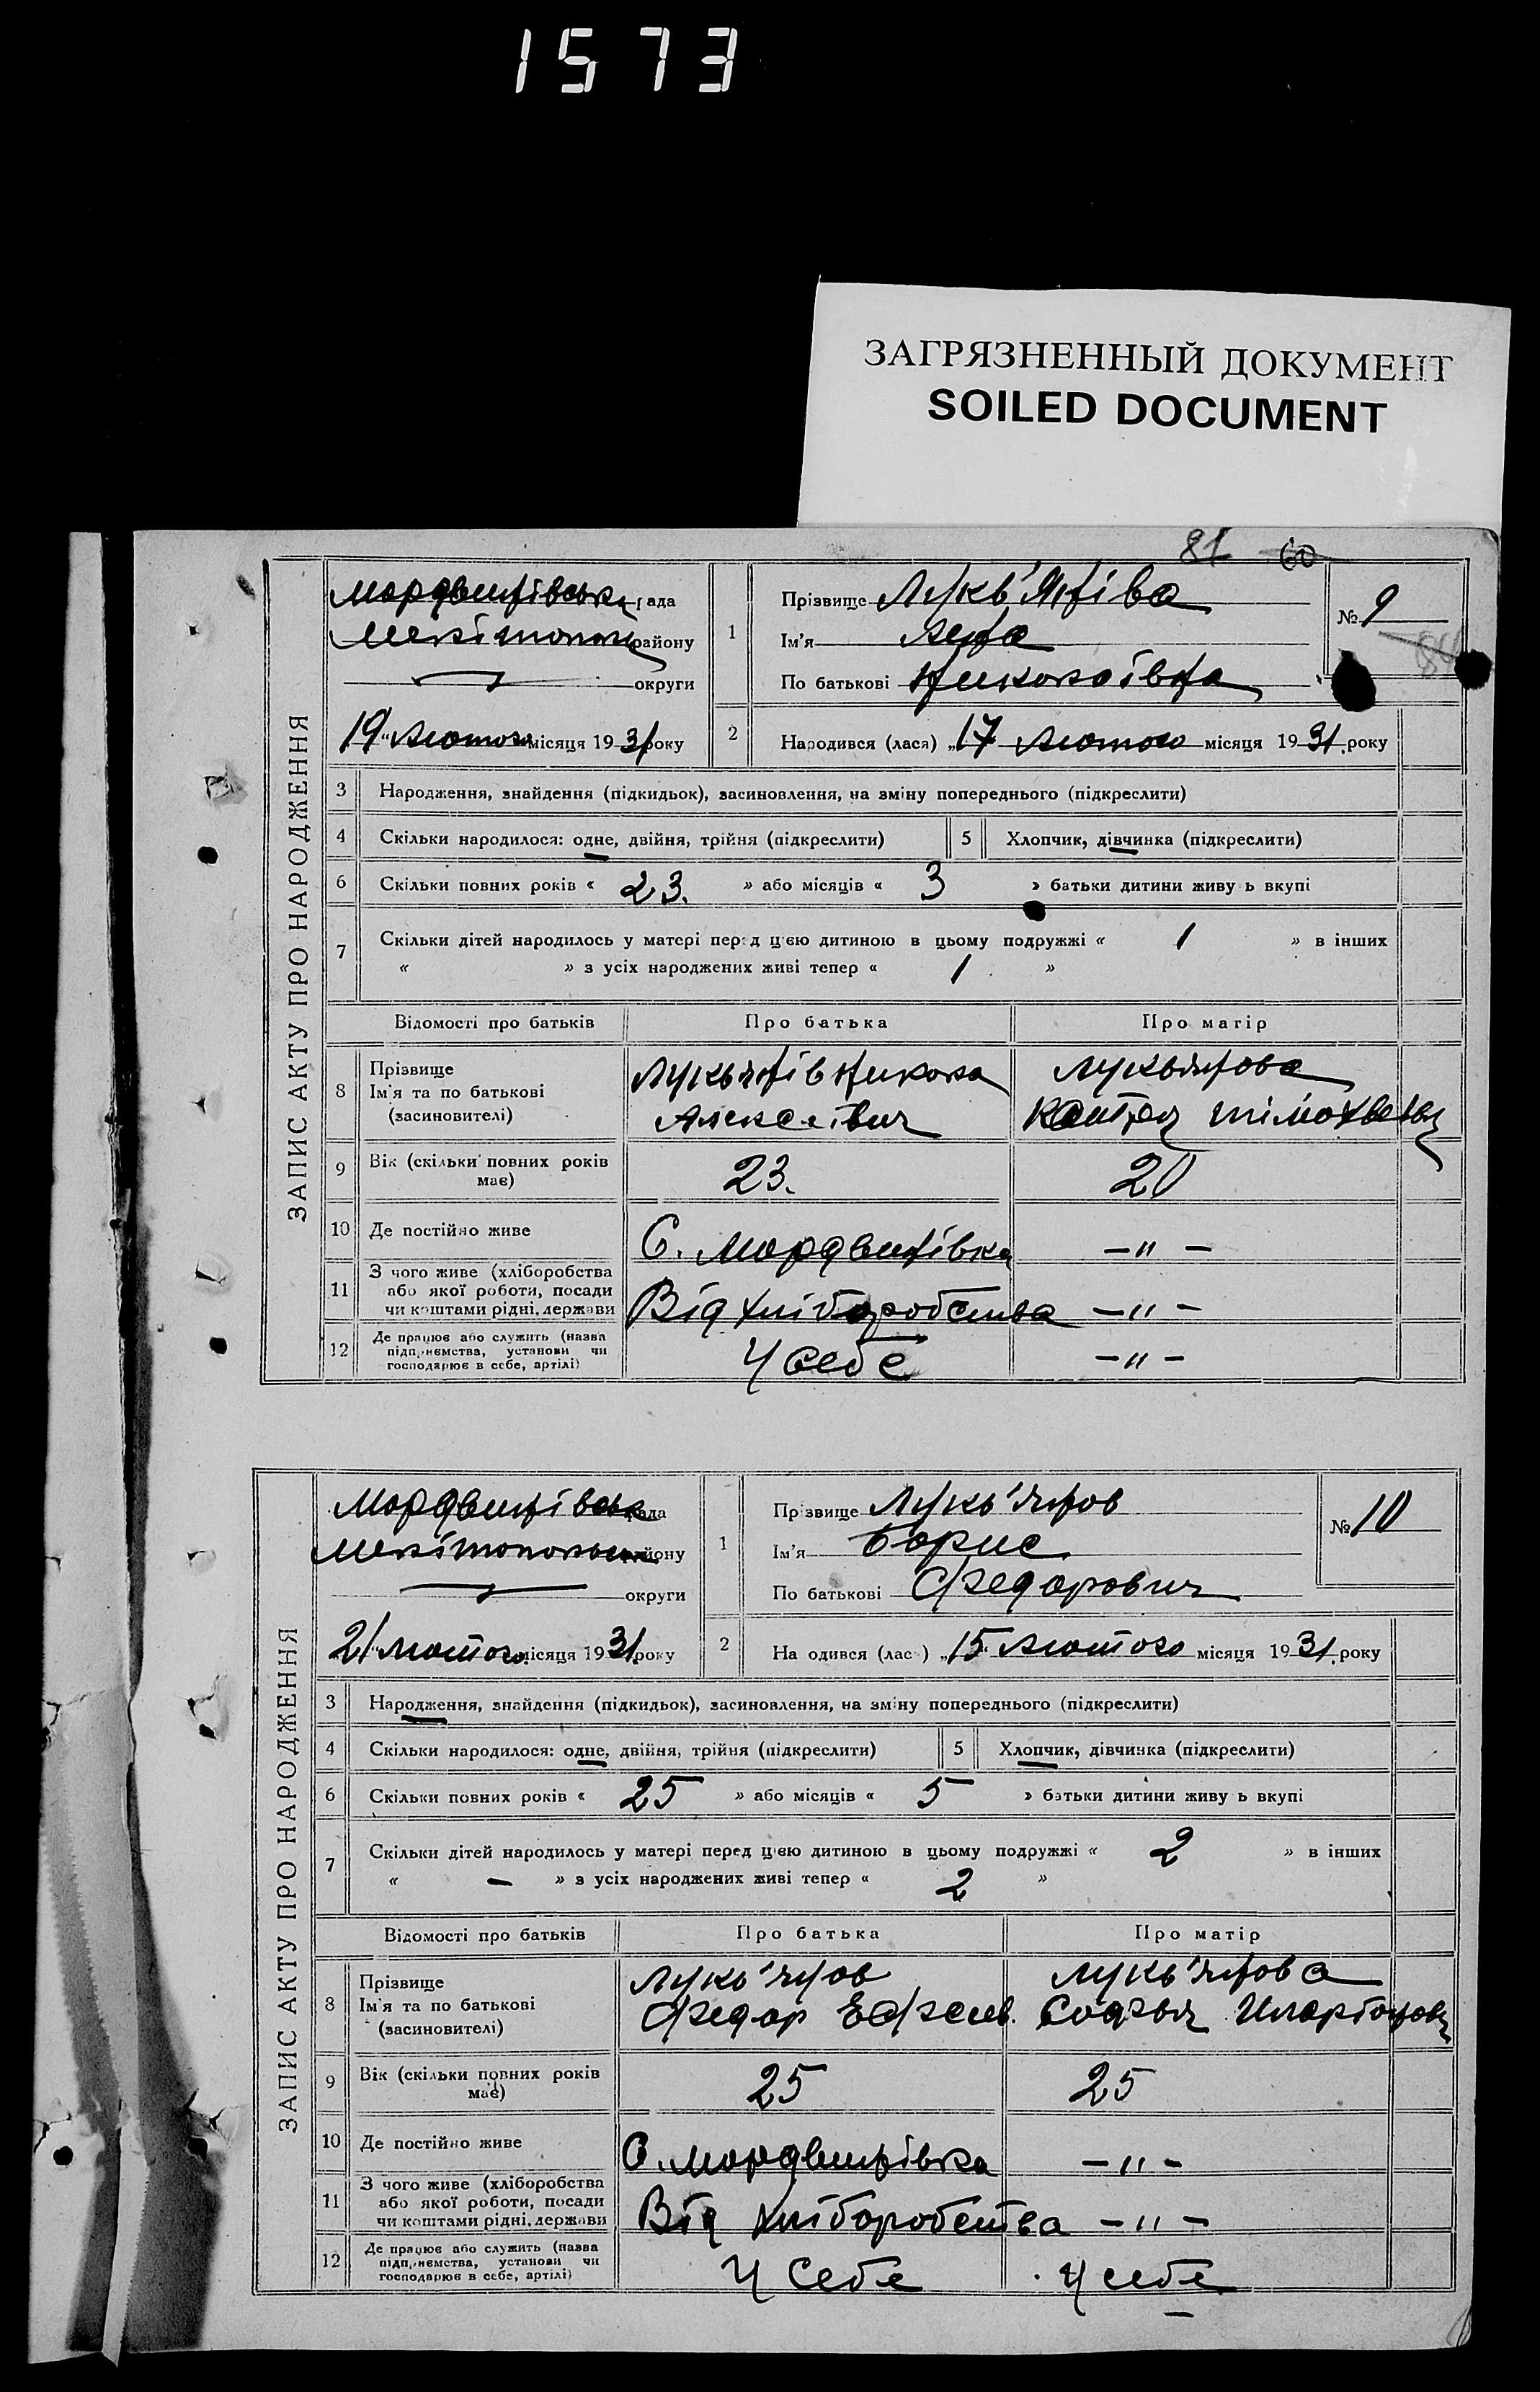 1573
ЗАГРЯЗНЕННЫЙ ДОКУМЕНТ
SOILED DOCUMENT
81 60
ЗАПИС АКТУ ПРО НАРОДЖЕННЯ
Мордвинівська рада
району
округи
"19" Лютого місяця 1931 року
1
Прізвище Лукь'Яніва
Ім'я Лена
По батькові Николаївна
№ 9
84
2
Народився (лася) "17 Лютого місяця 1931. року
3 Народження, знайдення (підкидьок), засиновлення, на зміну попереднього (підкреслити)
4 Скільки народилося: одне, двійня, трійня (підкреслити) 5 Хлопчик, дівчинка (підкреслити)
6 Скільки повних років « 23. » або місяців « 3 » батьки дитини живу ь вкупі
7 Скільки дітей народилось у матері перед цією дитиною в цьому подружжі « 1 » в інших
« » з усіх народжених живі тепер « 1 »
Відомості про батьків Про батька Про матір
8 Прізвище Ім'я та по батькові (засиновителі)
Лукьянів Никола Лукьянова
Алексеівич
9 Вік (скільки повних років має) 23. 20
10 Де постійно живе С. Мордвинівка —"—
11 З чого живе (хліборобства або якої роботи, посади чи коштами рідні, держави Від хліборобства —"—
12 Де працює або служить (назва підприємства, установи чи господарює в себе, артілі) У себе —"—
ЗАПИС АКТУ ПРО НАРОДЖЕННЯ
Мордвинівська рада
Мелітопольськ району
округи
21" Лютого місяця 1931. року
1
Прізвище Лукь'янов
Ім'я Борис
По батькові Федорович
№ 10
2
На одився (лас ) "15" Лютого місяця 1931. року
3 Народження, знайдення (підкидьок), засиновлення, на зміну попереднього (підкреслити)
4 Скільки народилося: одне, двійня, трійня (підкреслити) 5 Хлопчик, дівчинка (підкреслити)
6 Скільки повних років « 25 » або місяців « 5 » батьки дитини живу ь вкупі
7 Скільки дітей народилось у матері перед цією дитиною в цьому подружжі « 2 » в інших
« — » з усіх народжених живі тепер « 2 »
Відомості про батьків Про батька Про матір
8 Прізвище Ім'я та по батькові (засиновителі)
Лукь'янов Лукь'янова
Федор Софья
9 Вік (скільки повних років має) 25 25
10 Де постійно живе С. Мордвинівка —"—
11 З чого живе (хліборобства або якої роботи, посади чи коштами рідні, держави Від хліборобства —"—
12 Де працює або служить (назва підприємства, установи чи господарює в себе, артілі) У себе У себе